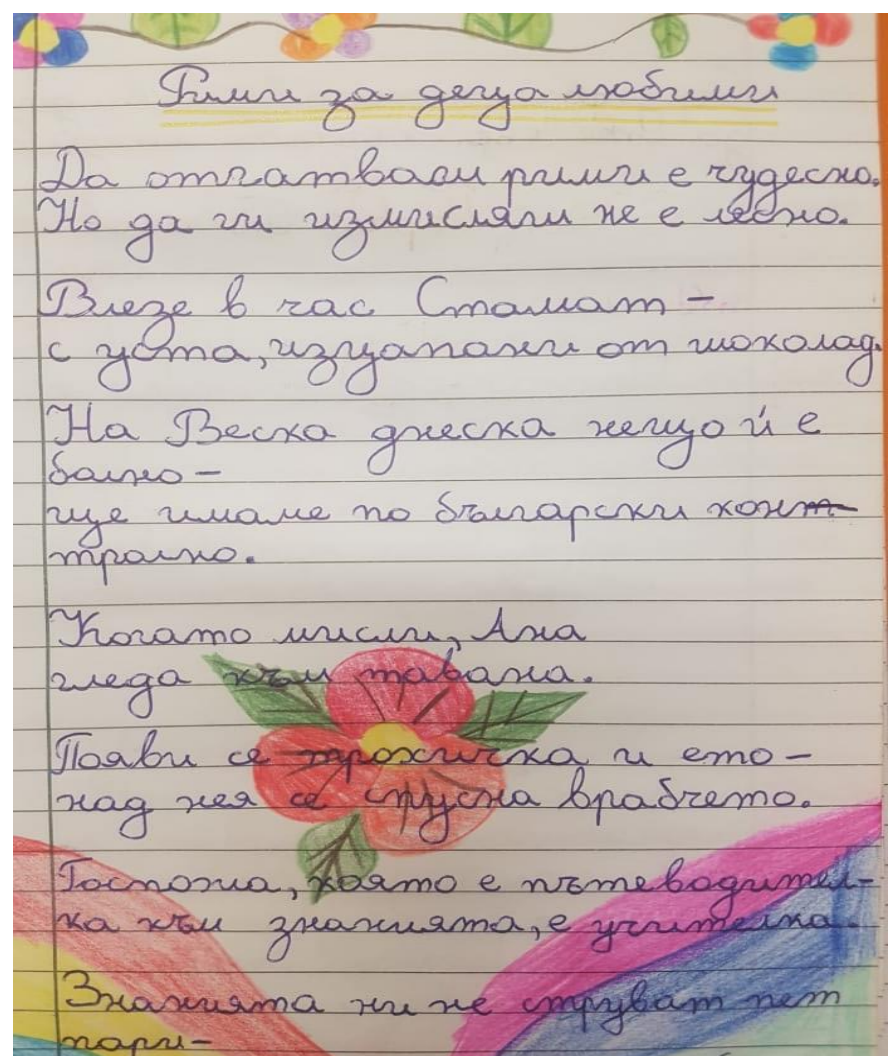 Рими за деца любими
Да отгатваш рими е чудесно.
Но да ги измисляш не е лесно.
Влезе в час Стамат -
с уста, изцапани от шоколад.
На Веска днеска нещо ѝ е
болно -
ще имаме по български конт-
тролно.
Когато мисли, Ана
гледа към тавана.
Появи се трохичка и ето -
над нея се спусна врабчето.
Госпожа, която е пътеводител-
ка към знанията, е учителка.
Знанията ни не струват пет
пари -